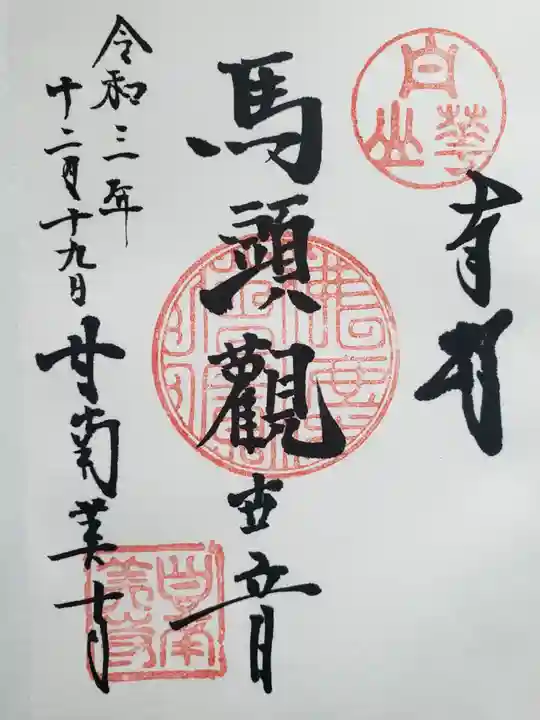 奉拝
白華山
馬頭觀世音
令和三年
十二月十九日
甘南美寺